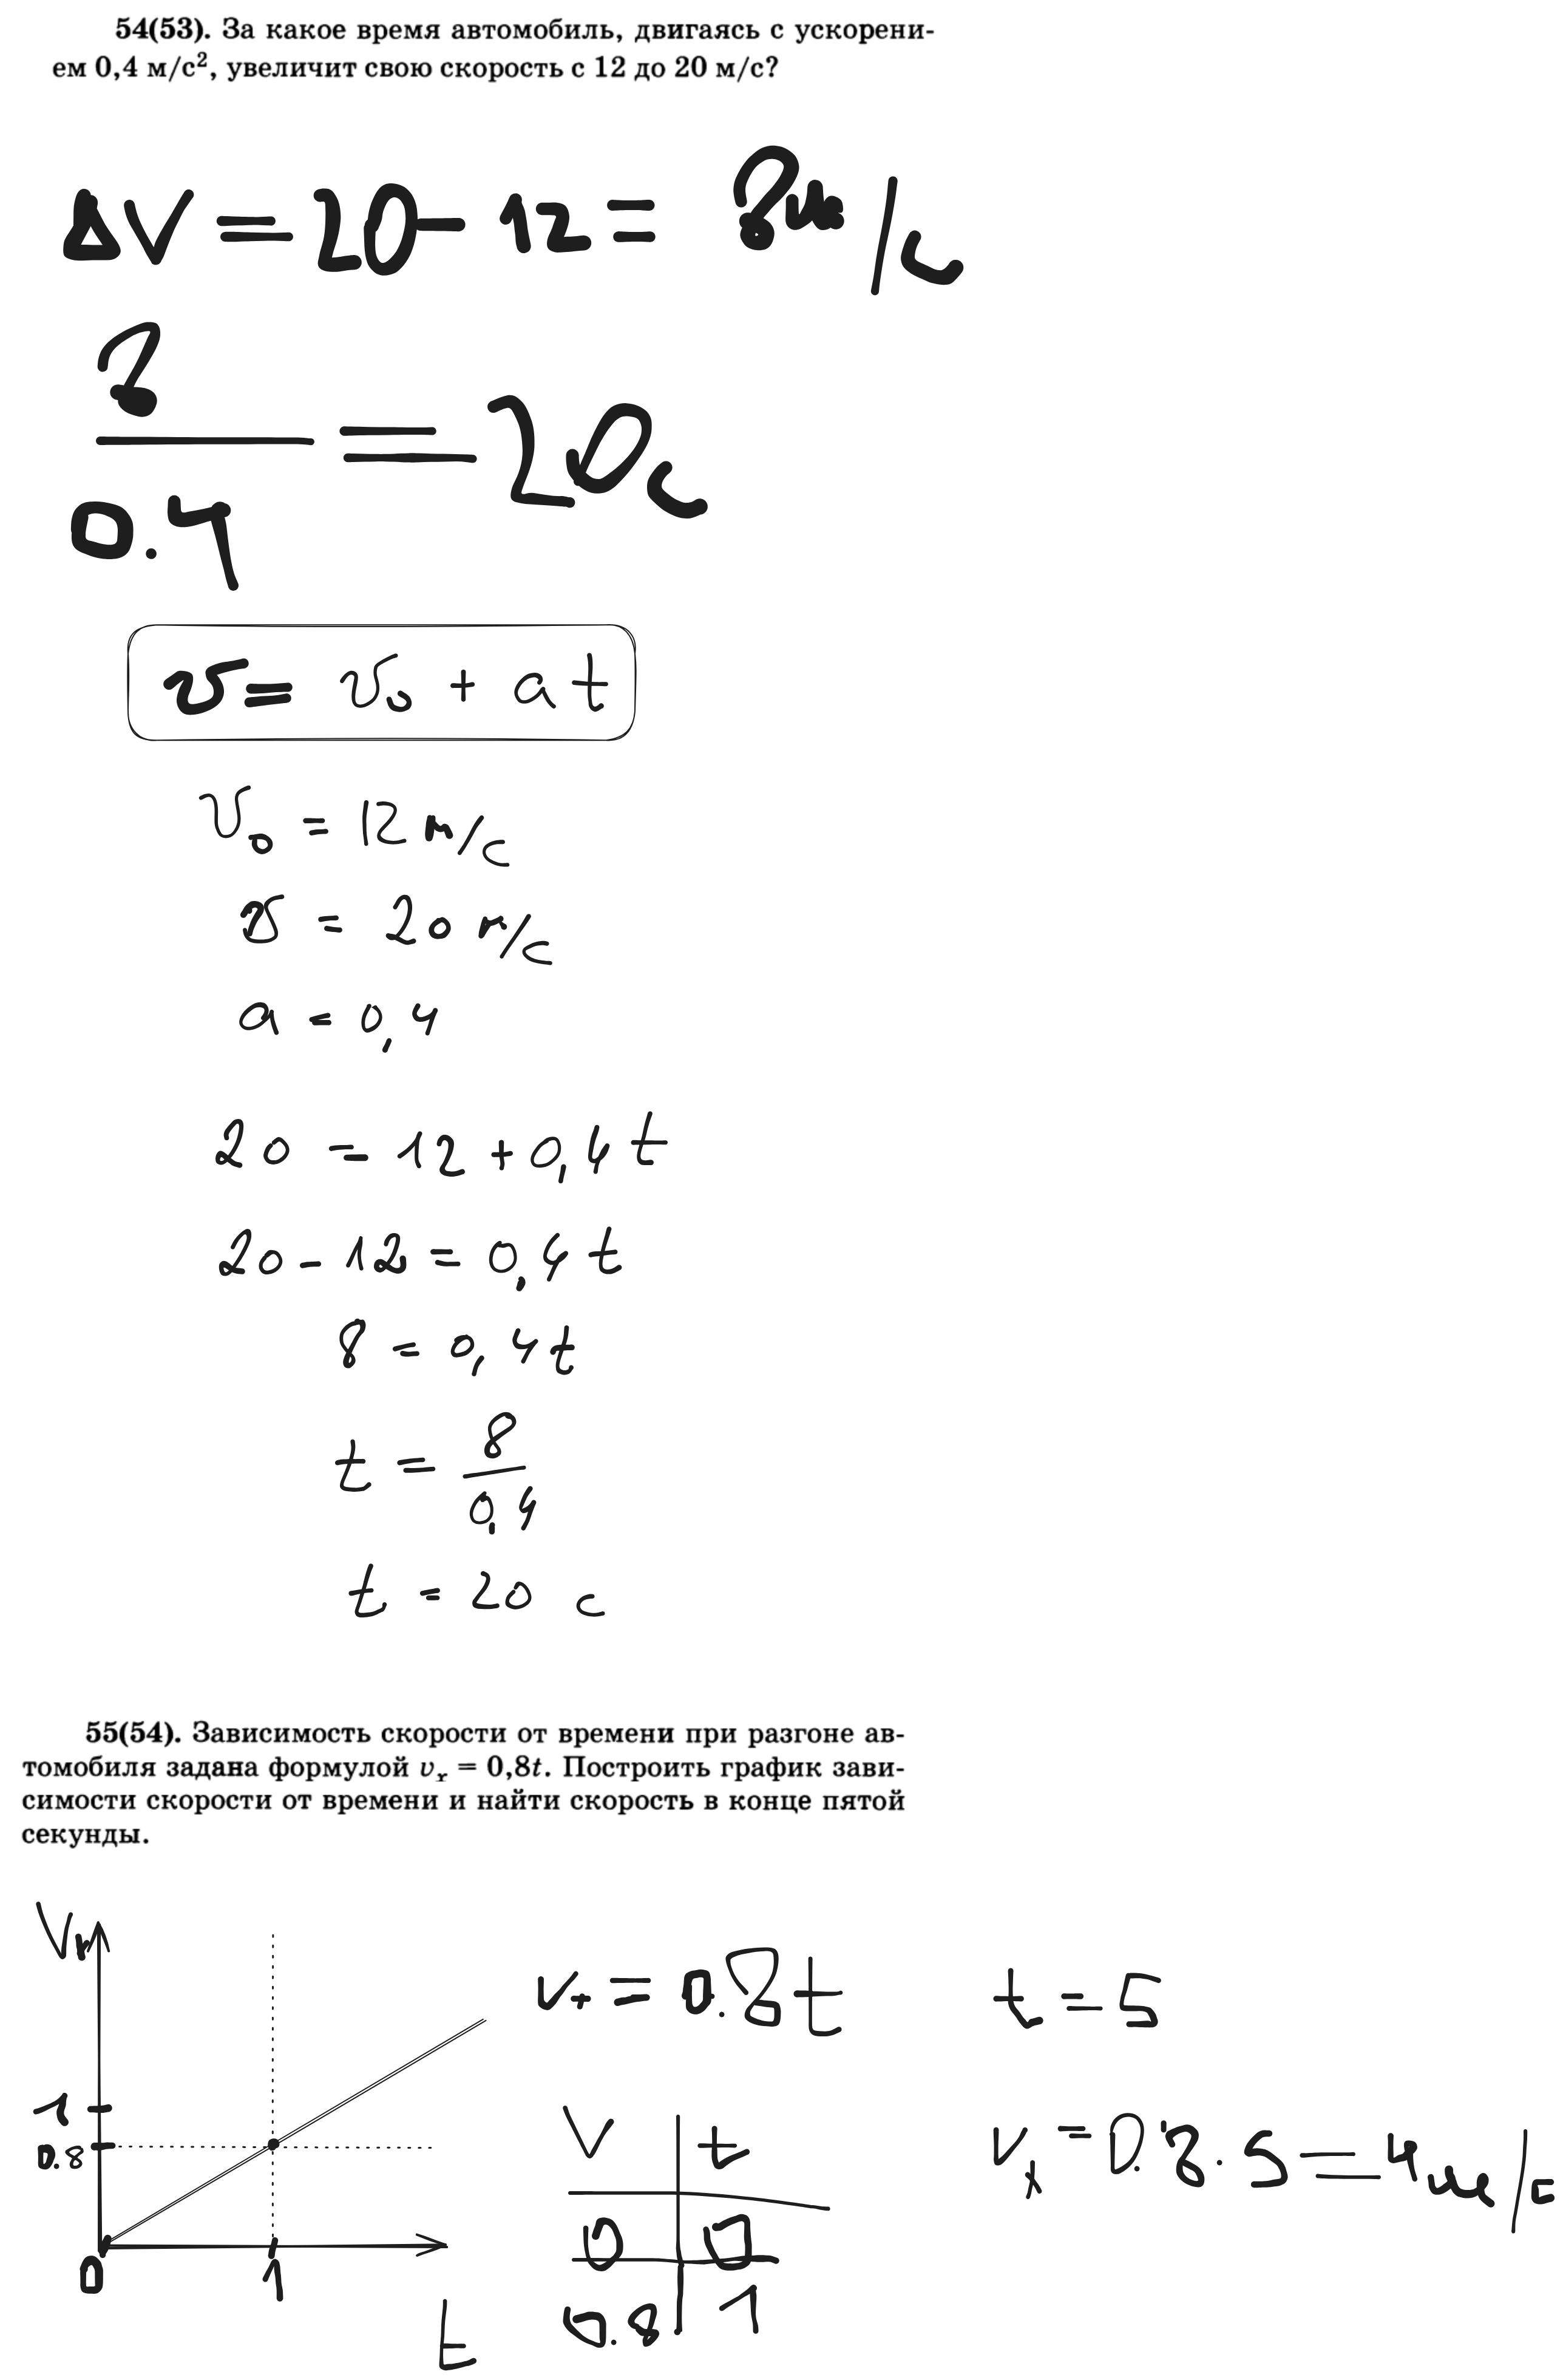 54(53). За какое время автомобиль, двигаясь с ускорени-
ем 0,4 м/с², увеличит свою скорость с 12 до 20 м/с?
ΔV = 20 - 12 = 8 м/с
8
0.4
= 20 с
v = v₀ + a t
v₀ = 12 м/с
v = 20 м/с
a = 0,4
20 = 12 + 0,4 t
20 - 12 = 0,4 t
8 = 0,4 t
t = 8/0,4
t = 20 с
55(54). Зависимость скорости от времени при разгоне ав-
томобиля задана формулой vₓ = 0,8t. Построить график зави-
симости скорости от времени и найти скорость в конце пятой
секунды.
Vₓ
1
0.8
0
1
t
vₓ = 0.8 t
V t
0 0
0.8 1
t = 5
Vₓ = 0.8 · 5 = 4 м/с